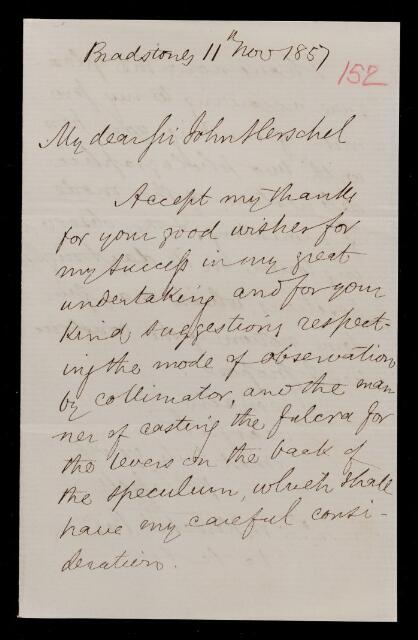 Bradstones 11th Nov 1857
152
My dear Sir John Herschel
Accept my thanks
for your good wishes for
my success in my great
undertaking and for your
kind suggestions respect-
ing the mode of observation
by collimator, and the man
ner of casting the fulcra for
the levers on the back of
the speculum, which shall
have my careful consi-
deration.